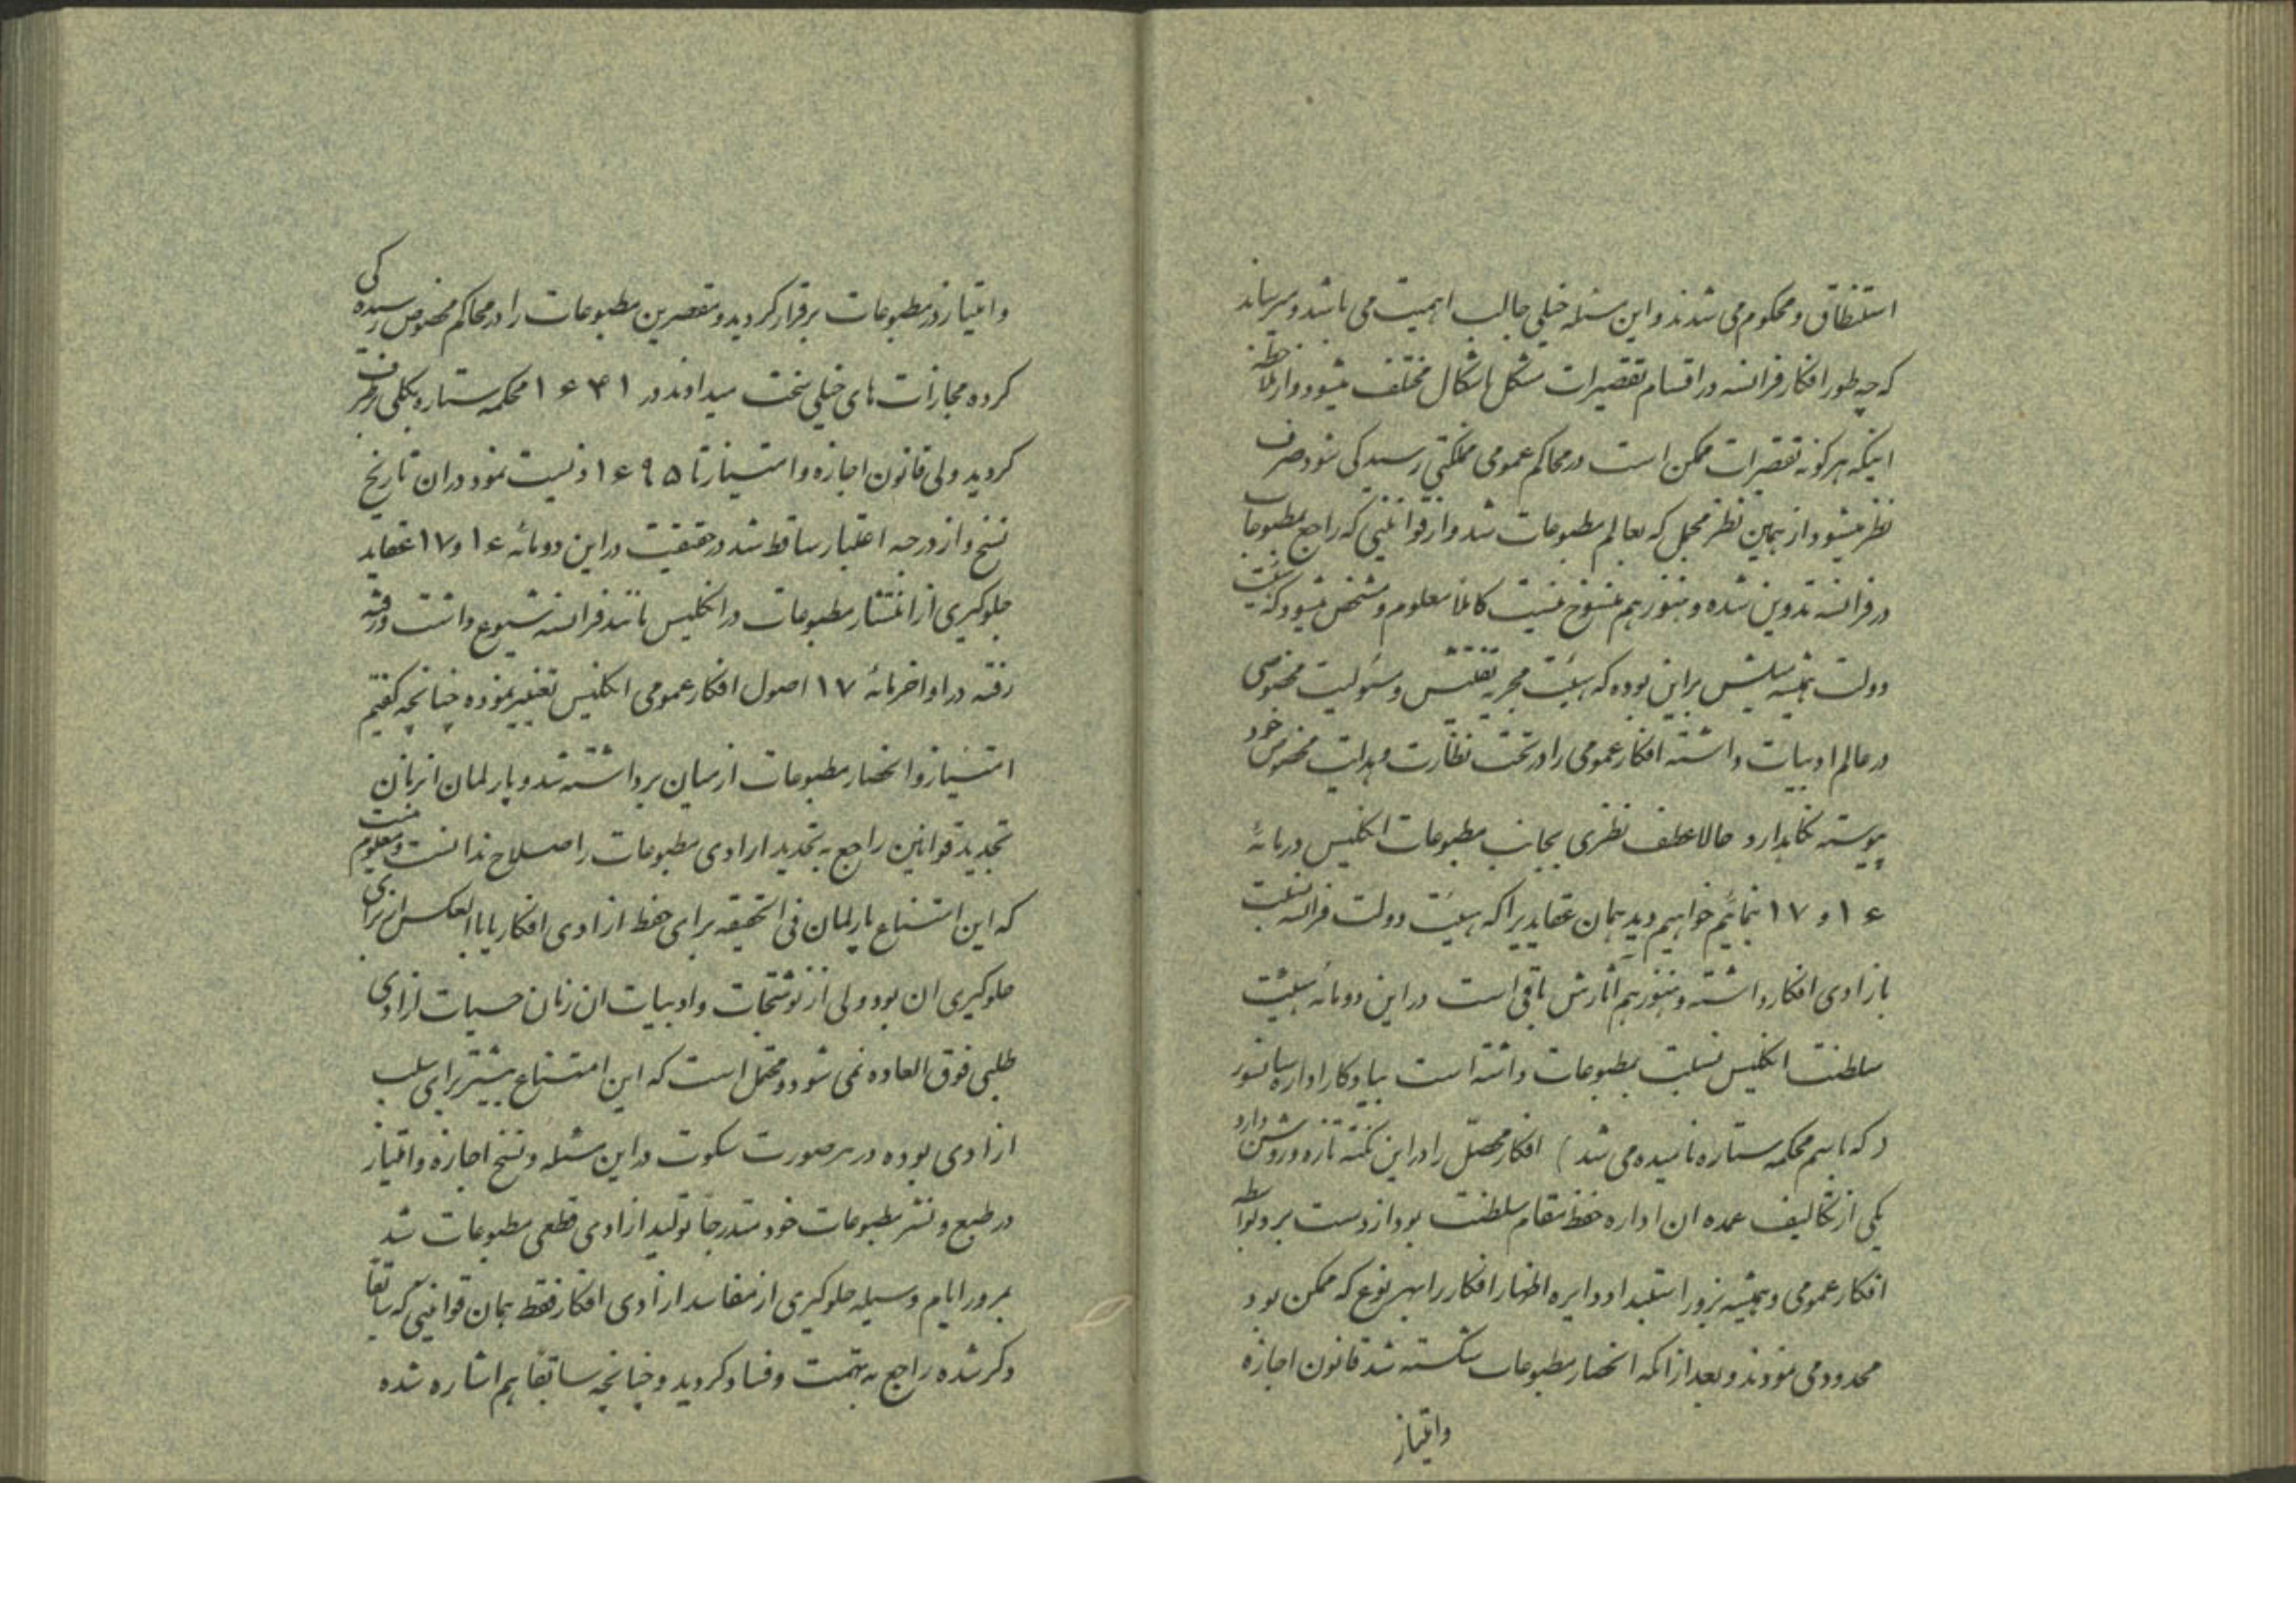 استنطاق و محکوم می شدند و این مسئله خیلی جالب اهمیت می باشد و میرساند
که چه طور افکار فرانسه در اقسام تقصیرات مشکل باشکال مختلف میشود و از ملاحظه
اینکه هر گونه تقصیرات ممکن است در محاکم عمومی مملکتی رسیدگی شود صرف
نظر میشود از همین نظر مجمل که بعالم مطبوعات شد و از قوانینی که راجع بمطبوعات
در فرانسه تدوین شده و هنوز هم منسوخ نیست کاملا معلوم و مشخص میشود که هیئت
دولت همیشه میلش براین بوده که هیئت مجریه تفتیش و مسئولیت مخصوصی
در عالم ادبیات داشته افکار عمومی را در تحت نظارت و هدایت مخصوص خود
پیوسته نگاهدارد حالا عطف نظری بجانب مطبوعات انگلیس در مائهٔ
۱۶ و ۱۷ نمائیم خواهیم دید همان عقایدیرا که هیئت دولت فرانسه نسبت
بازادی افکار داشته و هنوز هم آثارش باقی است در این دو مائه هیئت
سلطنت انگلیس نسبت بمطبوعات داشته است بیادگار اداره سانسور
(که باسم محکمه ستاره نامیده می شد) افکار محصّل را در این نکته تازه و روشن دارد
یکی از تکالیف عمده ان اداره حفظ مقام سلطنت بود از دست برد بواسطه
افکار عمومی و همیشه بزور استبداد دایره اظهار افکار را بهر نوع که ممکن بود
محدود می نمودند و بعد از انکه انحصار مطبوعات شکسته شد قانون اجازه
وامتیاز
وامتیاز در مطبوعات برقرار گردید و مقصرین مطبوعات را در محاکم مخصوص رسیده گی
کرده مجازات های خیلی سخت میدادند در ۱۶۴۱ محکمه ستاره بکلی برطرف
گردید ولی قانون اجازه و امتیاز تا ۱۶۹۵ دنسیت نمود در ان تاریخ
نسخ و از درجه اعتبار ساقط شد در حقیقت در این دو مائه ۱۶ و ۱۷ عقاید
جلوگیری از انتشار مطبوعات در انگلیس مانند فرانسه شیوع داشت و رفته
رفته در اواخر مائهٔ ۱۷ اصول افکار عمومی انگلیس تغییر نموده چنانچه گفتیم
امتیاز و انحصار مطبوعات از میان برداشته شد و پارلمان انزمان
تجدید قوانین راجع به تحدید ازادی مطبوعات را صلاح ندانست و معلوم نیست
که این امتناع پارلمان فی الحقیقه برای حفظ ازادی افکار یا بالعکس از برای
جلوگیری ان بود ولی از نوشتجات و ادبیات ان زمان حسیات ازادی
طلبی فوق العاده نمی شود و محتمل است که این امتناع بیشتر برای سلب
ازادی بوده در هر صورت سکوت در این مسئله و نسخ اجازه و امتیاز
در طبع و نشر مطبوعات خود متدرجاً تولید ازادی قطعی مطبوعات شد
بمرور ایام وسیله جلوگیری از مفاسد ازادی افکار فقط همان قوانینی که سابقاً
ذکر شده راجع به تهمت و فساد گردید و چنانچه سابقاً هم اشاره شده